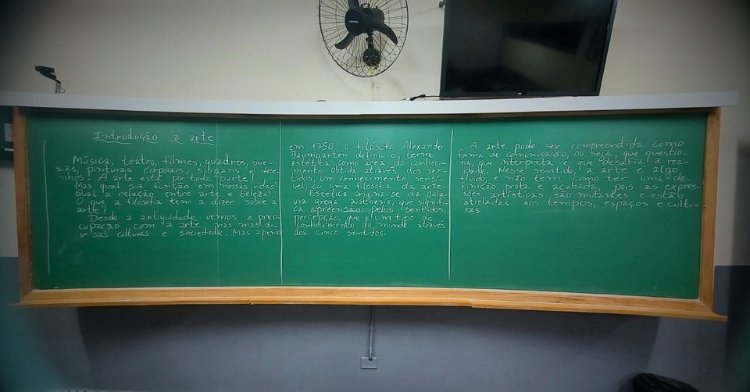 Introdução à arte
Música, teatro, filmes, quadros, poe-
sias, pinturas corporais,
A arte está por toda parte!
Mas qual sua função em nossas vidas?
Qual a relação entre arte e beleza?
O que a filosofia tem a dizer sobre a
arte?
Desde a antiguidade vemos a preo
cupação com a arte, nas mais di-
versas culturas e sociedade. Mas apenas
em 1750 o filósofo Alexander
Baumgarten definiu o termo
estética como área do conheci-
mento obtida através dos sen-
tidos, um conhecimento sensí-
vel, ou uma filosofia da arte.
Estética origina-se da pala
vra grega aisthesis, que signifi-
ca apreensão pelos sentidos,
percepção, que é um tipo de
conhecimento do mundo através
dos cinco sentidos.
A arte pode ser compreendida como
forma de comunicação, ou seja, que questio
na, que interpreta e que desafia a rea-
lidade. Nesse sentido, a arte é algo
fluido, e não tem como ter uma de-
finição pronta e acabada, pois as expres-
sões artísticas são mutantes e estão
atreladas aos tempos, espaços e cultu-
ras.